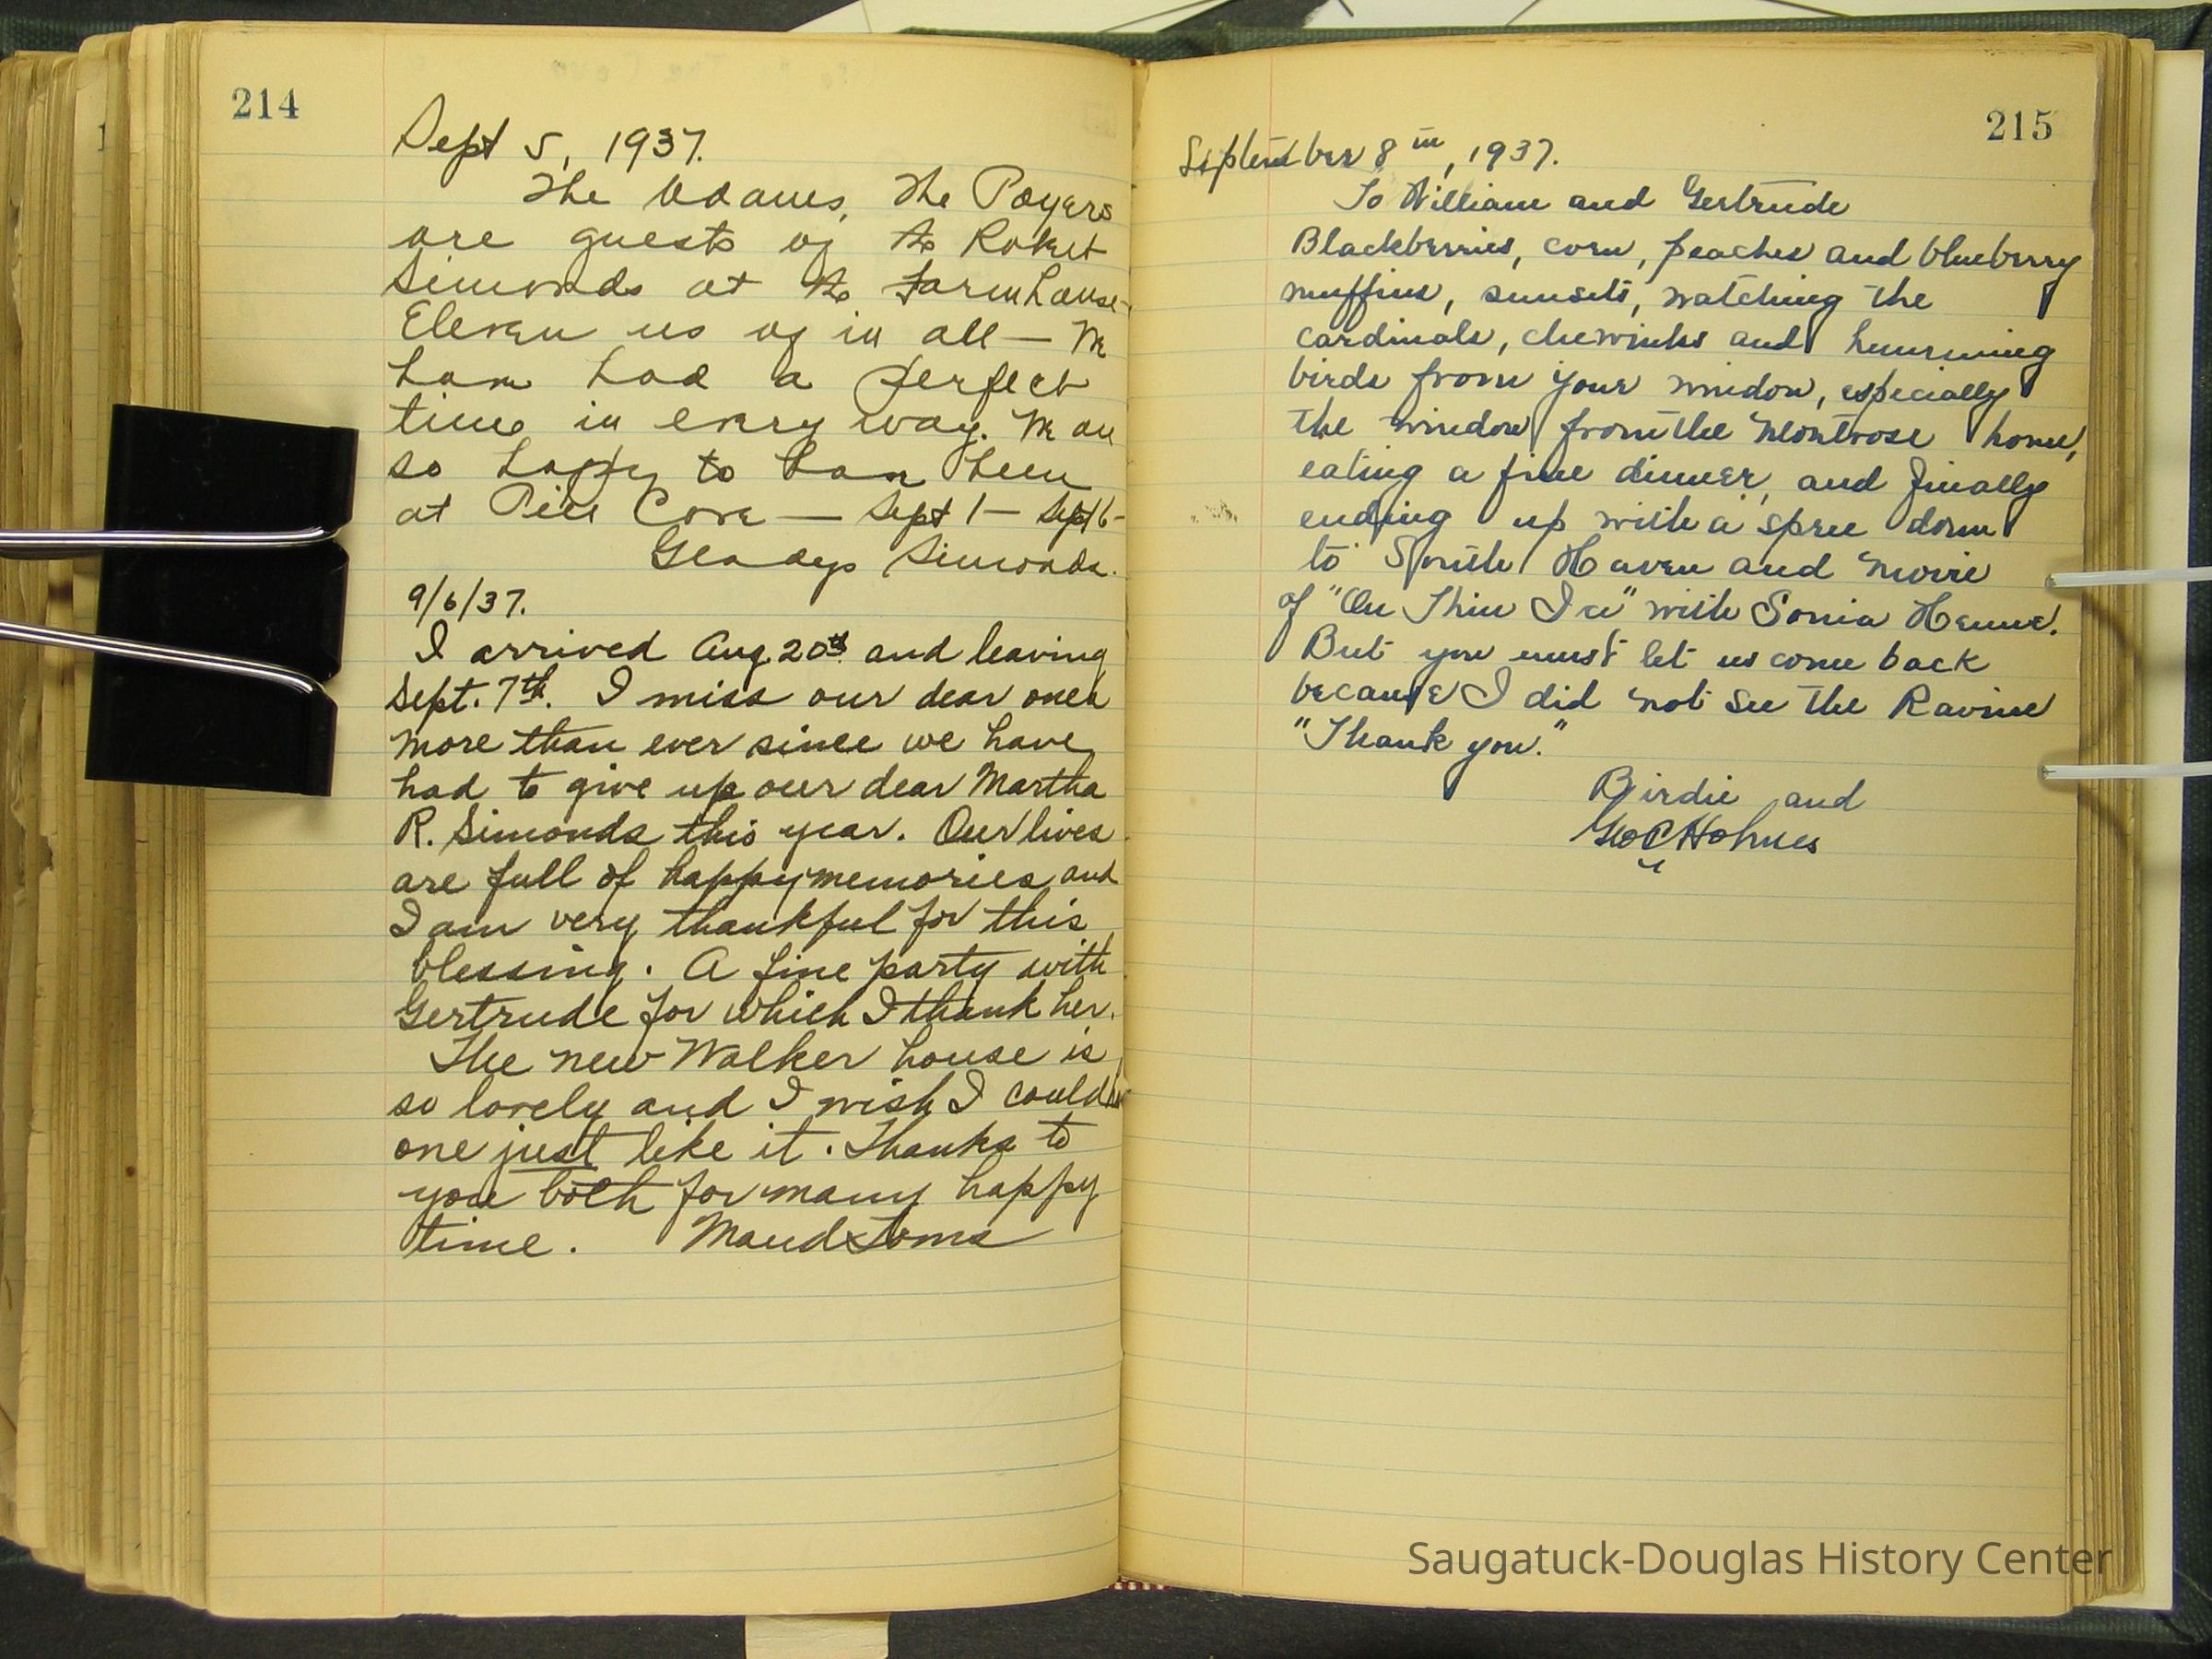 214
Sept 5, 1937.
The Adams, The Poyers
are guests of the Robert
Simonds at the Farmhouse-
Eleven us of in all — We
have had a perfect
time in every way. We are
so happy to have been
at Pier Cove — Sept 1 — Sept 6 -
Gladys Simonds.
9/6/37.
I arrived Aug. 20th. and leaving
Sept. 7th. I miss our dear ones
more than ever since we have
had to give up our dear Martha
R. Simonds this year. Our lives
are full of happy memories and
I am very thankful for this
blessing. A fine party with
Gertrude for which I thank her.
The new Walker house is
so lovely and I wish I could
one just like it. Thanks to
you both for many happy
time. Maud
215
September 8th, 1937.
To William and Gertrude
Blackberries, corn, peaches and blueberry
muffins, sunsets, watching the
cardinals, chewinks and humming
birds from your window, especially
the window from the Montrose home,
eating a fine dinner, and finally
ending up with a spree down
to South Haven and movie
of "On Thin Ice" with Sonia Henne.
But you must let us come back
because I did not see the Ravine
"Thank you."
Birdie and
Geo C Holmes
Saugatuck-Douglas History Center